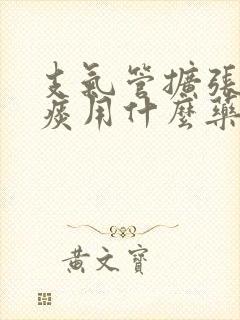 支氣管擴張
痰用什麼藥
黃文寶